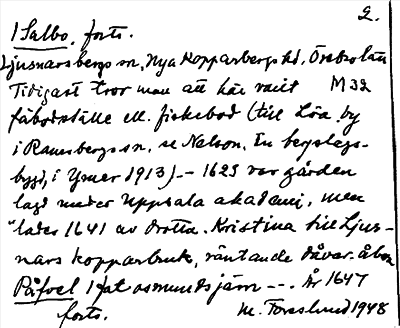 2.
1 Salbo, forts.
Ljusnarsbergs sn, Nya Kopparbergs hd, Örebro län
Tidigast tror man att här varit M 32
fäbodställe ell. fiskebod (till Löa by
i Ramsbergs sn, se Nelson, En bergslags-
bygd, i Ymer 1913) - 1625 var gården
lagd under Uppsala akademi, men
lades 1641 av drottn. Kristina till Ljus-
nars kopparbruk, räntande dåvar. åbon
Påfvel 1 fat osmundsjärn --. År 1647
forts. M. Forslund 1948